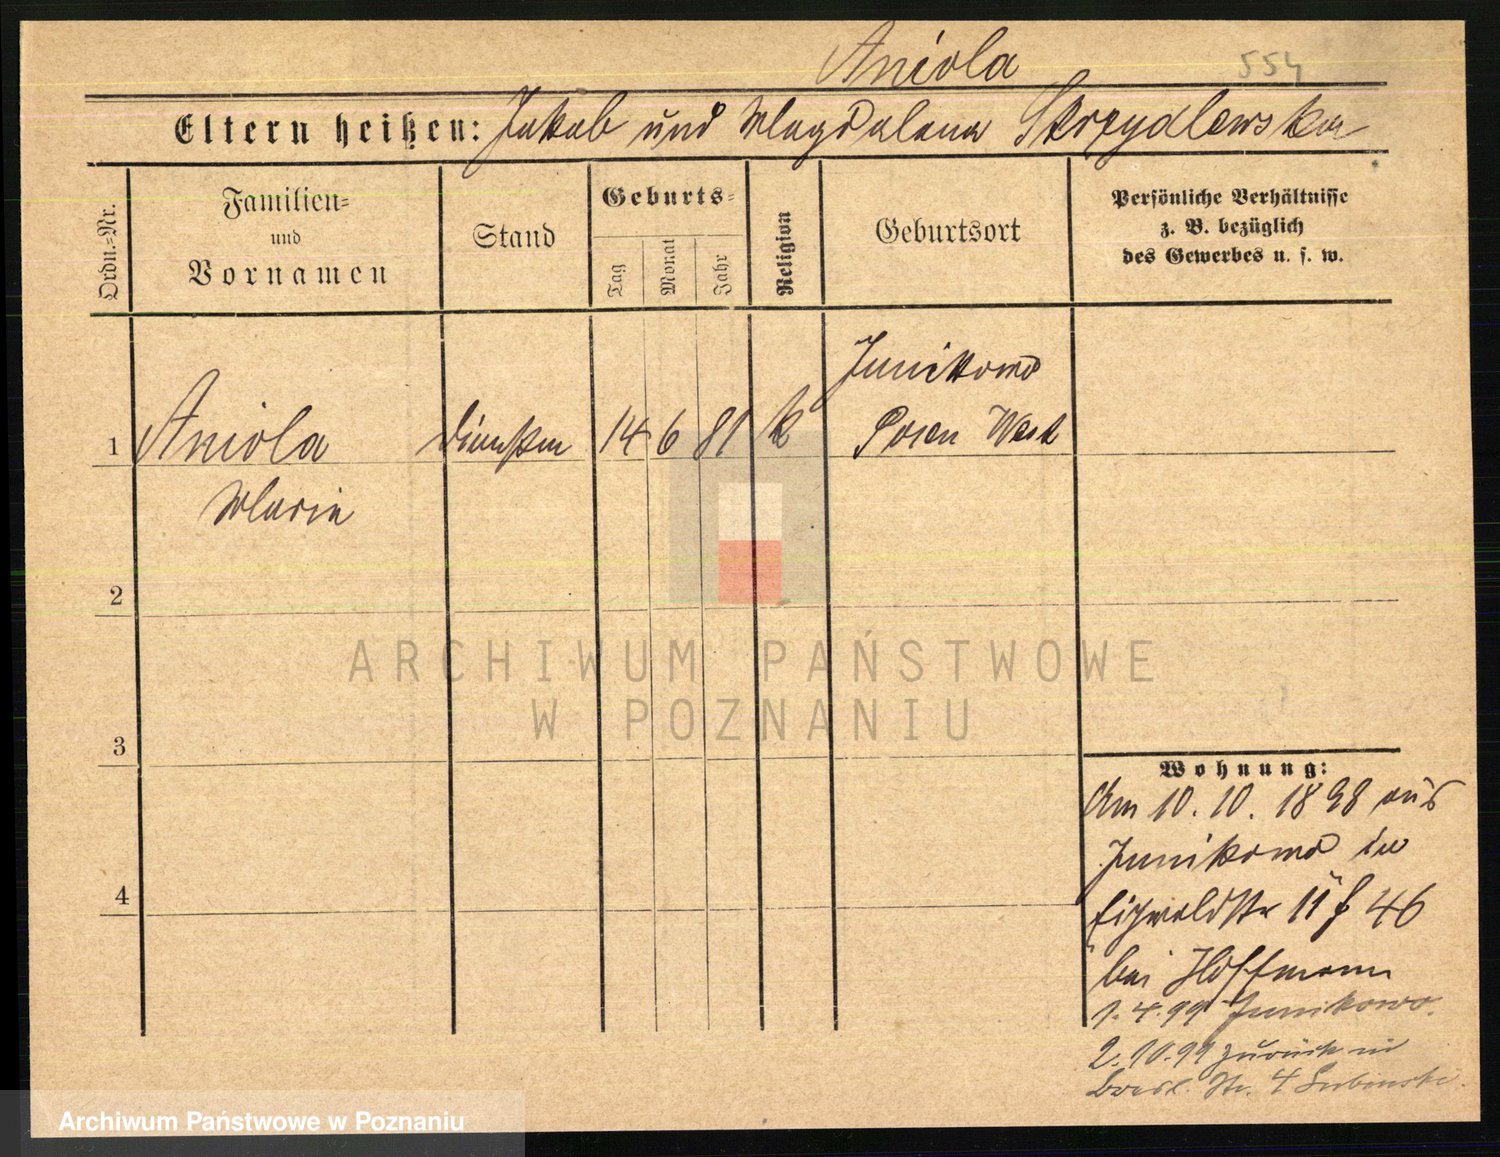 Aniola 554
Eltern heißen: Jakob und Magdalena Skrzydlewska
Ordn.-Nr.
Familien-
und
Vornamen
Stand
Geburts-
Tag
Monat
Jahr
Religion
Geburtsort
Persönliche Verhältnisse
z. B. bezüglich
des Gewerbes u. s. w.
Junikowo
1 Aniola 14 6 81 k Posen West
Marie
2
3
4
ARCHIWUM PAŃSTWOWE
W POZNANIU
Wohnung:
Am 10. 10. 1898 aus
Junikowo in
Eichwaldstr 11 f 46
bei Hoffmann
1.4.99 Junikowo.
2.10.99 zurück in
Bresl. Str. 4 Lubinski.
Archiwum Państwowe w Poznaniu